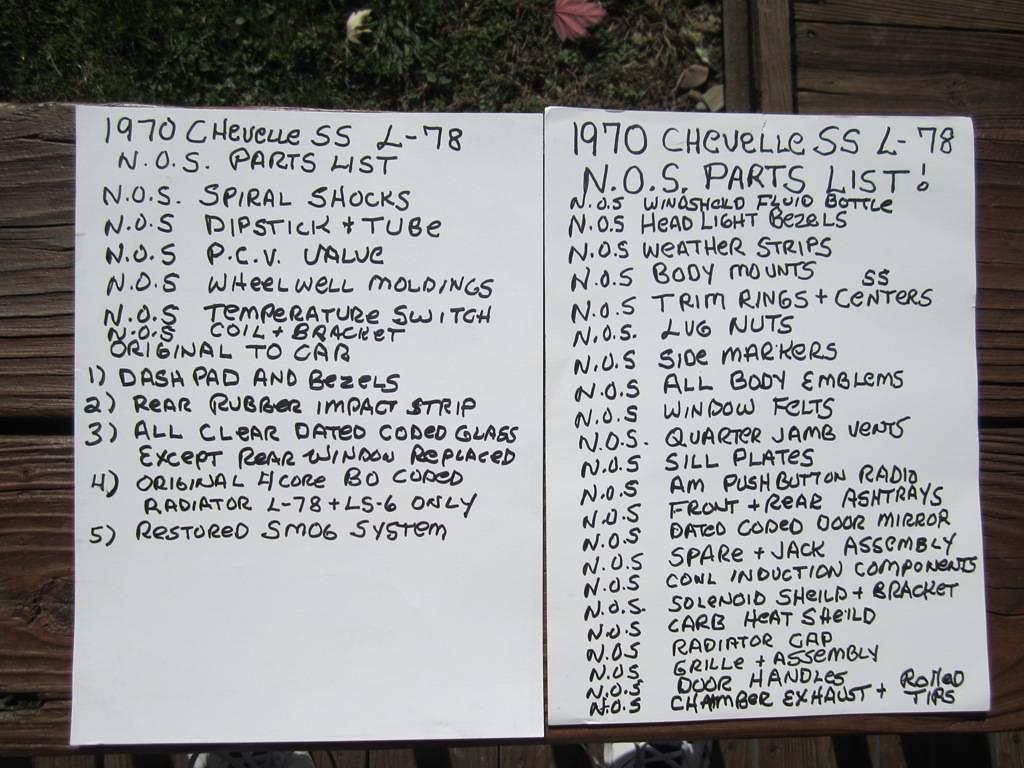 1970 CHevelle SS L-78
N.O.S. PARTS LIST
N.O.S. SPIRAL SHOCKS
N.O.S DIPSTICK + TUBe
N.O.S P.C.V. VALVe
N.O.S WHeelwell MOLDINGS
N.O.S TEMPERATURE SWITCH
N.O.S COIL + BRACKET
ORIGINAL TO CAR
1) DASH PAD AND Bezels
2) ReAR RUBBER IMPACT STRIP
3) ALL CLEAR DATED CODED GLASS
EXCEPT REAR WINDOW REPLACED
4) ORIGINAL 4 CORE BO CODED
RADIATOR L-78 + LS-6 ONLY
5) RESTORED SMOG SYSTEM
1970 CHEVELLE SS L-78
N.O.S. PARTS LIST!
N.O.S WINDSHELD FLUID BOTTLE
N.O.S HEADLIGHT BEZELS
N.O.S WEATHER STRIPS
N.O.S BODY MOUNTS SS
N.O.S TRIM RINGS + CENTERS
N.O.S. LUG NUTS
N.O.S SIDE MARKERS
N.O.S ALL BODY EMBLEMS
N.O.S WINDOW FELTS
N.O.S. QUARTER JAMB VENTS
N.O.S SILL PLATES
N.O.S AM PUSHBUTTON RADIO
N.O.S FRONT + REAR ASHTRAYS
N.O.S DATED CODED DOOR MIRROR
N.O.S SPARE + JACK ASSEMBLY
N.O.S COWL INDUCTION COMPONENTS
N.O.S. SOLENOID SHEILD + BRACKET
N.O.S CARB HEAT SHEILD
N.O.S RADIATOR CAP
N.O.S GRILLE + ASSEMBLY
N.O.S DOOR HANDLES
N.O.S CHAMBER EXHAUST + ROLLED TIPS